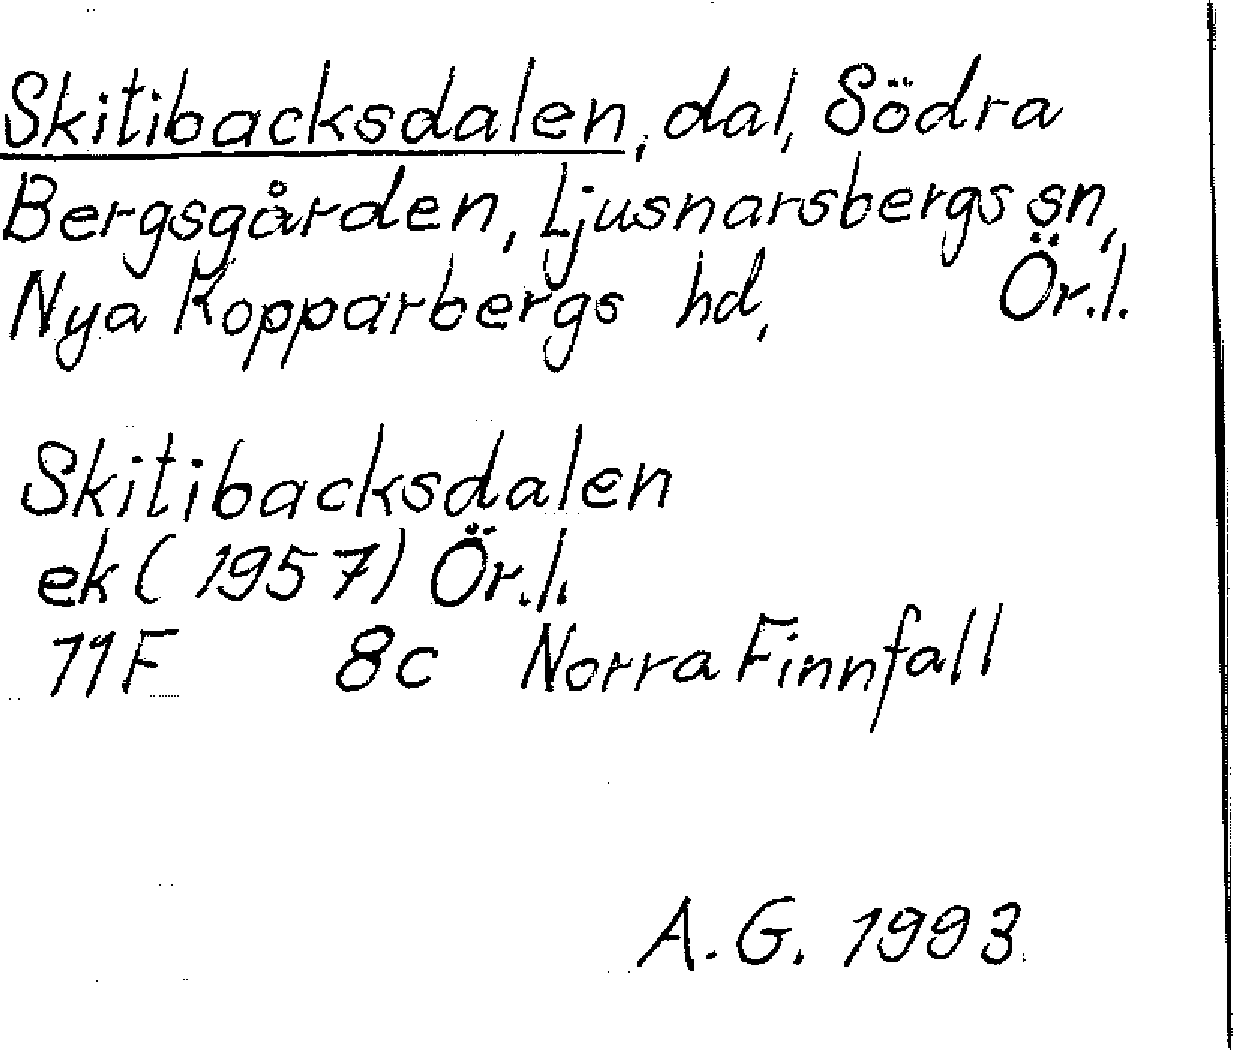 Skitibacksdalen, dal, Södra
Bergsgården, Ljusnarsbergs sn,
Nya Kopparbergs hd, Ör.l.
Skitibacksdalen
ek (1957) Ör.l.
11F 8c Norra Finnfall
A.G. 1993